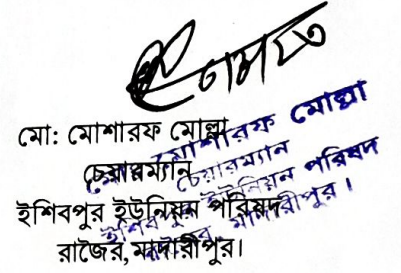 মো: মোশারফ মোল্লা
চেয়ারম্যান
ইশিবপুর ইউনিয়ন পরিষদ
রাজৈর, মাদারীপুর।
মোঃ মোশারফ মোল্লা
চেয়ারম্যান
ইশিবপুর ইউনিয়ন পরিষদ
রাজৈর মাদারীপুর।